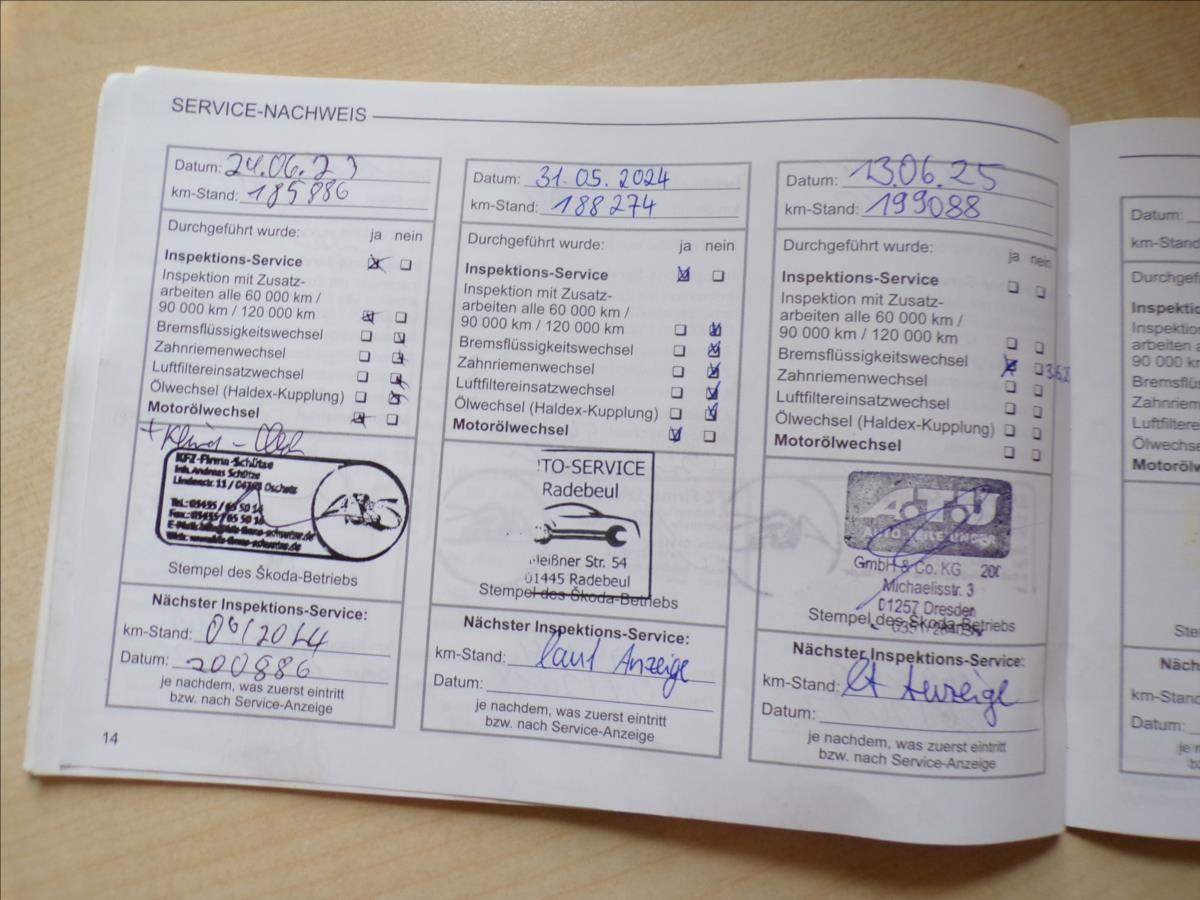 SERVICE-NACHWEIS
Datum: 24.06.23
km-Stand: 185886
Durchgeführt wurde: ja nein
Inspektions-Service
Inspektion mit Zusatz-
arbeiten alle 60 000 km /
90 000 km / 120 000 km
Bremsflüssigkeitswechsel
Zahnriemenwechsel
Luftfiltereinsatzwechsel
Ölwechsel (Haldex-Kupplung)
Motorölwechsel
KFZ-Firma-Schütze
Inh. Andreas Schütze
Lindenstr. 11 / 04758 Oschatz
Tel.: 03435 / 65 50 14
Fax.: 03435 / 65 50 16
E-Mail:
Web:
Stempel des Škoda-Betriebs
Nächster Inspektions-Service:
km-Stand:
Datum: 200886
je nachdem, was zuerst eintritt
bzw. nach Service-Anzeige
14
Datum: 31.05.2024
km-Stand: 188274
Durchgeführt wurde: ja nein
Inspektions-Service
Inspektion mit Zusatz-
arbeiten alle 60 000 km /
90 000 km / 120 000 km
Bremsflüssigkeitswechsel
Zahnriemenwechsel
Luftfiltereinsatzwechsel
Ölwechsel (Haldex-Kupplung)
Motorölwechsel
TO-SERVICE
Radebeul
Meißner Str. 54
01445 Radebeul
Stempel des Škoda-Betriebs
Nächster Inspektions-Service:
km-Stand: laut Anzeige
Datum:
je nachdem, was zuerst eintritt
bzw. nach Service-Anzeige
Datum: 13.06.25
km-Stand: 199088
Durchgeführt wurde: ja nein
Inspektions-Service
Inspektion mit Zusatz-
arbeiten alle 60 000 km /
90 000 km / 120 000 km
Bremsflüssigkeitswechsel
Zahnriemenwechsel
Luftfiltereinsatzwechsel
Ölwechsel (Haldex-Kupplung)
Motorölwechsel
A.T.U
AUTO TEILE UNGER
GmbH & Co. KG 200
Michaelisstr. 3
01257 Dresden
Stempel des Škoda-Betriebs
Nächster Inspektions-Service:
km-Stand: lt Anzeige
Datum:
je nachdem, was zuerst eintritt
bzw. nach Service-Anzeige
Datum:
km-Stand
Durchgef
Inspektio
Inspektion
arbeiten a
90 000 km
Bremsflüs
Zahnriem
Luftfiltere
Ölwechse
Motorölw
Ste
Näch
km-Stand
Datum:
je n
bz